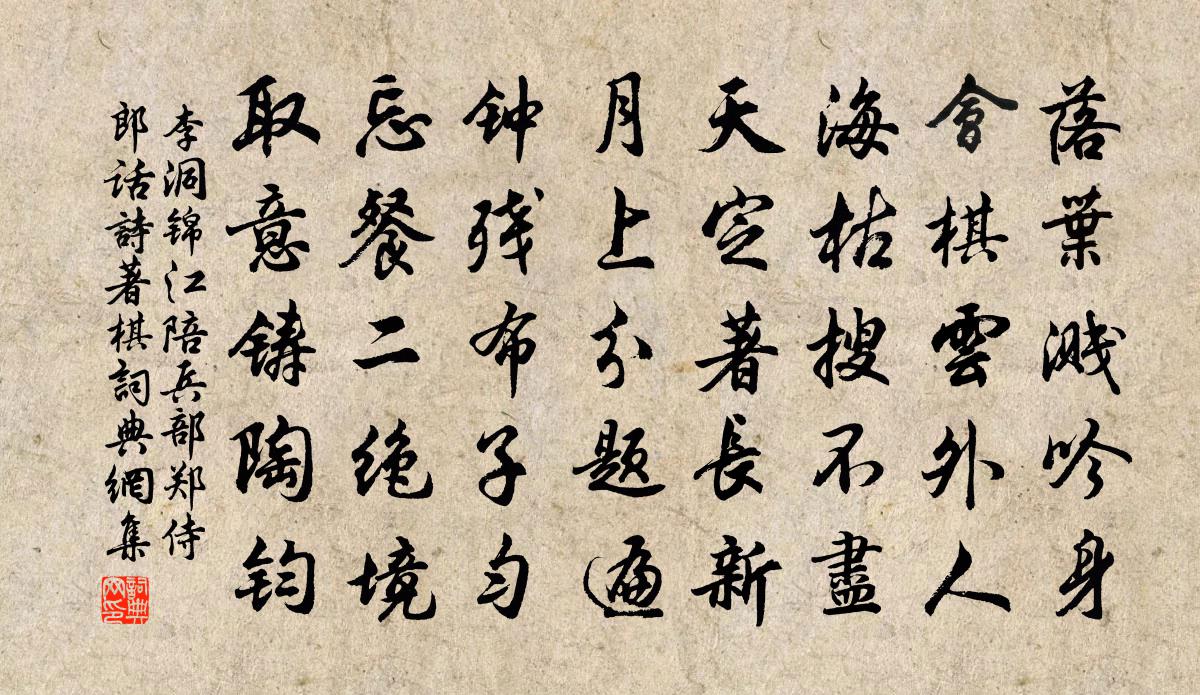 落葉濺吟身
會棋雲外人
海枯搜不盡
天定著長新
月上分题遍
钟残布子匀
忘餐二绝境
取意铸陶钧
李洞锦江陪兵部郑侍
郎话詩著棋詞典網集
詞典